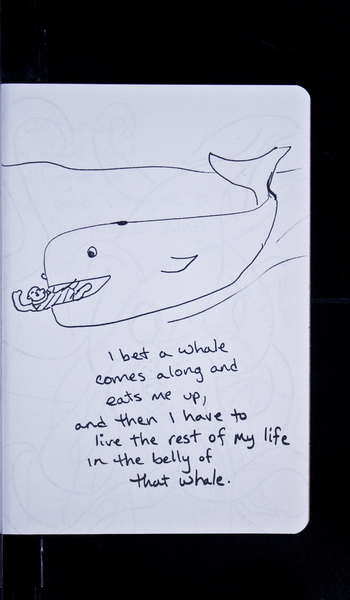 I bet a whale
comes along and
eats me up,
and then I have to
live the rest of my life
in the belly of
that whale.